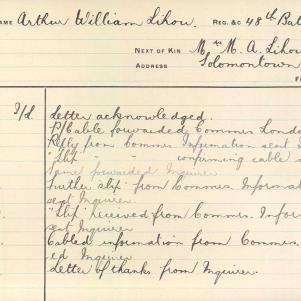 NAME Arthur William Lihou. REG. &C 48th Bat
NEXT OF KIN Mrs M. A. Lihou
ADDRESS Solomontown
I/L Letter acknowledged.
P/Cable forwarded Commrs London
Reply from Commrs. Information sent
"Slip" " confirming cable
Same forwarded Inquirer
Further "slip" from Commrs. Informat
sent Inquirer.
"Slip" received from Commrs. Infor
sent Inquirer
Cabled information from Commrs.
ed Inquirer
Letter of thanks from Inquirer.